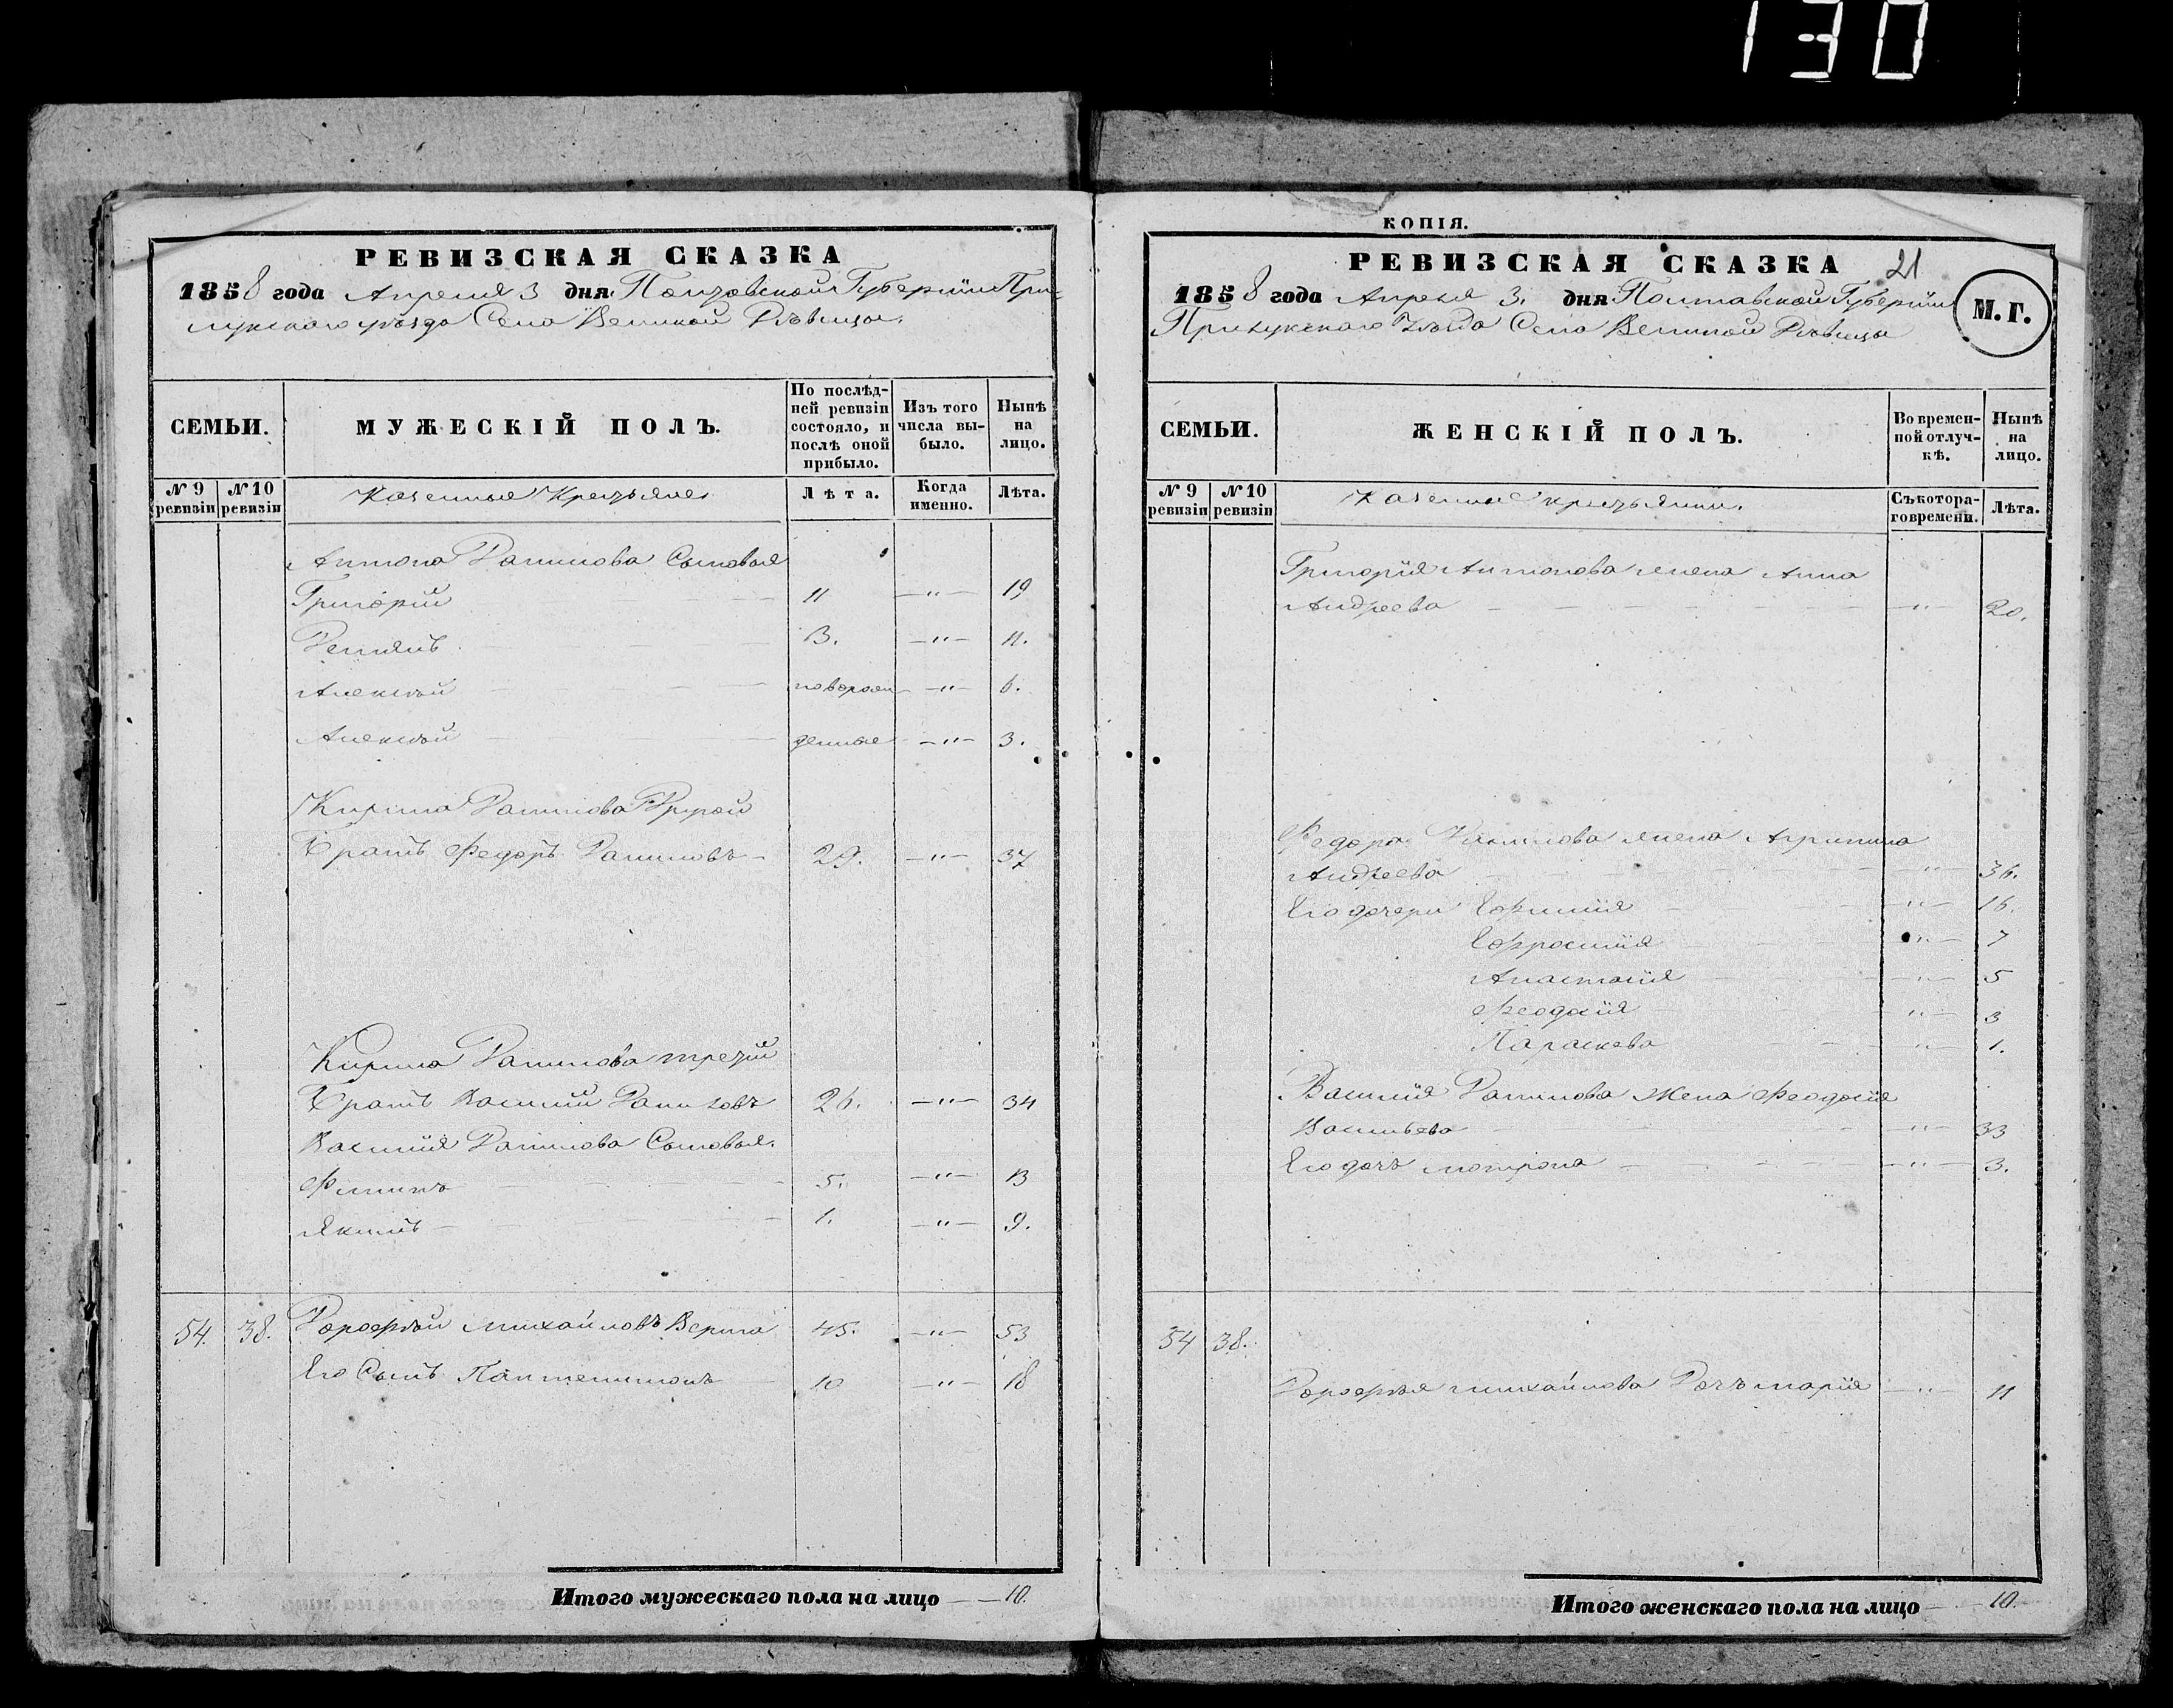 130
РЕВИЗСКАЯ СКАЗКА
1858 года Апреля 3 дня Полтавской Губерніи При-
лукского уѣзда Села Великой Дѣвицы.
СЕМЬИ.
МУЖЕСКІЙ ПОЛЪ.
По послѣд-
ней ревизіи
состояло, и
послѣ оной
прибыло.
Изъ того
числа вы-
было.
Нынѣ
на
лицо.
№ 9
ревизіи
№ 10
ревизіи
Казенные Крестьяне
Лѣта.
Когда
именно.
Лѣта.
Антона Данилова Сыновья
Григорій 11 —"— 19
Демянъ 3. —"— 11.
Алексѣй новорож —"— 6.
Алексѣй денные —"— 3.
Кирила Данилова Другой
Братъ Федоръ Даниловъ 29. —"— 37
Кирила Данилова третій
Братъ Василий Даниловъ 26. —"— 34
Василія Данилова Сыновья.
Филипъ 5. —"— 13
Якимъ 1. —"— 9.
54. 38. Дорофѣй Михайловъ Верига 45. —"— 53
Его Сынъ Пантелимонъ 10 —"— 18
Итого мужескаго пола на лицо — 10.
КОПІЯ.
РЕВИЗСКАЯ СКАЗКА
21
1858 года Апреля 3. дня Полтавской Губерніи
Прилукского Уѣзда Села Великой Дѣвицы
М. Г.
СЕМЬИ.
ЖЕНСКІЙ ПОЛЪ.
Во времен-
ной отлуч-
кѣ.
Нынѣ
на
лицо.
№ 9
ревизіи
№ 10
ревизіи
Казенные крестьянки.
Съ котора-
го времени.
Лѣта.
Григорія Антонова жена Анна
Андреева —"— 20.
Федора Данилова жена Агрипина
Андреева —"— 36.
Его дочери Ефимия —"— 16.
Ефросинія —"— 7
Анастасія —"— 5
Феодосія —"— 3
Параскева —"— 1.
Василія Данилова Жена Феодосія
Васильева —"— 33
Его дочь Мотрона —"— 3.
54 38.
Дорофѣя Михайлова Дочь Марія —"— 11
Итого женскаго пола на лицо — 10.